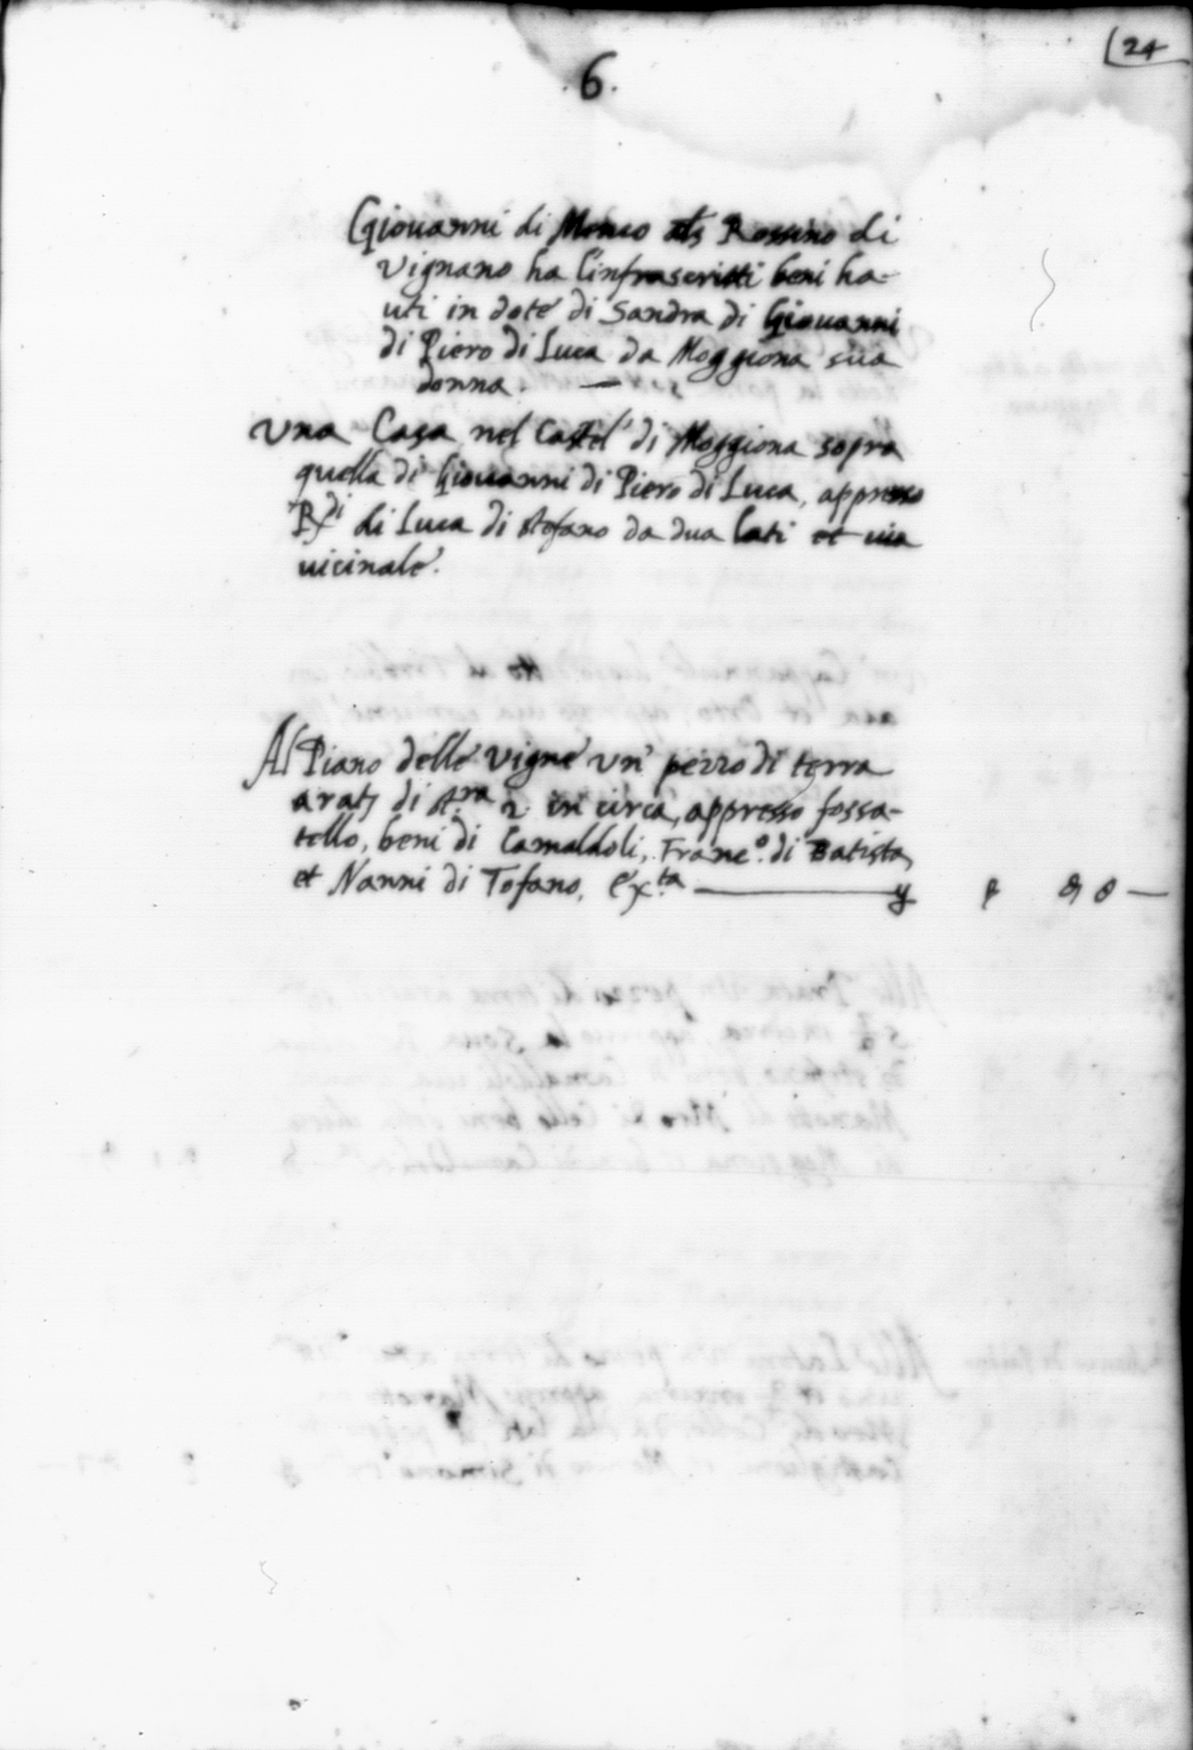 24
.6.
Giouanni di Meuco als Rossino di
Vignano ha l'infrascritti beni ha-
uti in dote di Sandra di Giouanni
di Piero di Luca da Moggiona sua
donna. —
Una Casa nel Castel' di Moggiona sopra
quella di Giouanni di Piero di Luca, appresso
Rdi di Luca di stefano da dua lati et uia
uicinale.
Al Piano delle vigne un' pezzo di terra
di 2 in circa, appresso fossa-
tello, beni di Camaldoli, Franc.º di Batista,
et Nanni di Tofano,